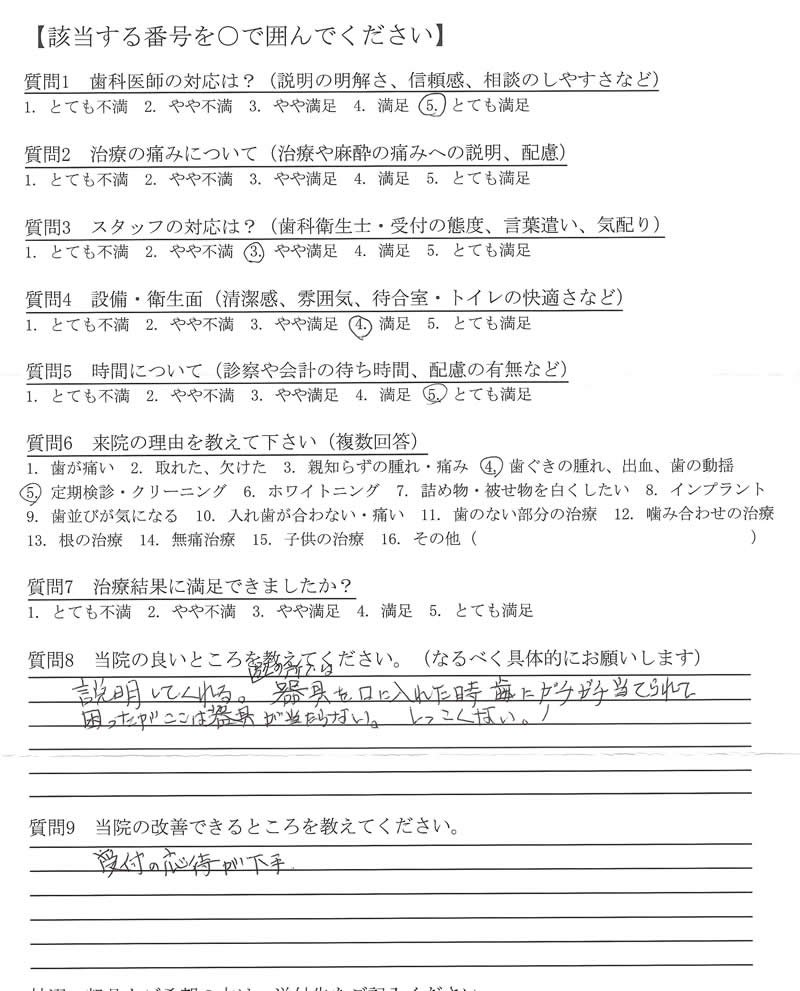 【該当する番号を〇で囲んでください】
質問1　歯科医師の対応は？（説明の明解さ、信頼感、相談のしやすさなど）
1. とても不満　2. やや不満　3. やや満足　4. 満足　5. とても満足
質問2　治療の痛みについて（治療や麻酔の痛みへの説明、配慮）
1. とても不満　2. やや不満　3. やや満足　4. 満足　5. とても満足
質問3　スタッフの対応は？（歯科衛生士・受付の態度、言葉遣い、気配り）
1. とても不満　2. やや不満　3. やや満足　4. 満足　5. とても満足
質問4　設備・衛生面（清潔感、雰囲気、待合室・トイレの快適さなど）
1. とても不満　2. やや不満　3. やや満足　4. 満足　5. とても満足
質問5　時間について（診察や会計の待ち時間、配慮の有無など）
1. とても不満　2. やや不満　3. やや満足　4. 満足　5. とても満足
質問6　来院の理由を教えて下さい（複数回答）
1. 歯が痛い　2. 取れた、欠けた　3. 親知らずの腫れ・痛み　4. 歯ぐきの腫れ、出血、歯の動揺
5. 定期検診・クリーニング　6. ホワイトニング　7. 詰め物・被せ物を白くしたい　8. インプラント
9. 歯並びが気になる　10. 入れ歯が合わない・痛い　11. 歯のない部分の治療　12. 噛み合わせの治療
13. 根の治療　14. 無痛治療　15. 子供の治療　16. その他（　　　　　　　）
質問7　治療結果に満足できましたか？
1. とても不満　2. やや不満　3. やや満足　4. 満足　5. とても満足
質問8　当院の良いところを教えてください。（なるべく具体的にお願いします）
の所では
説明してくれる。器具を口に入れた時歯にガチガチ当てられて
困ったがここは器具が当たらない。しつこくない。
質問9　当院の改善できるところを教えてください。
受付の応待が下手.